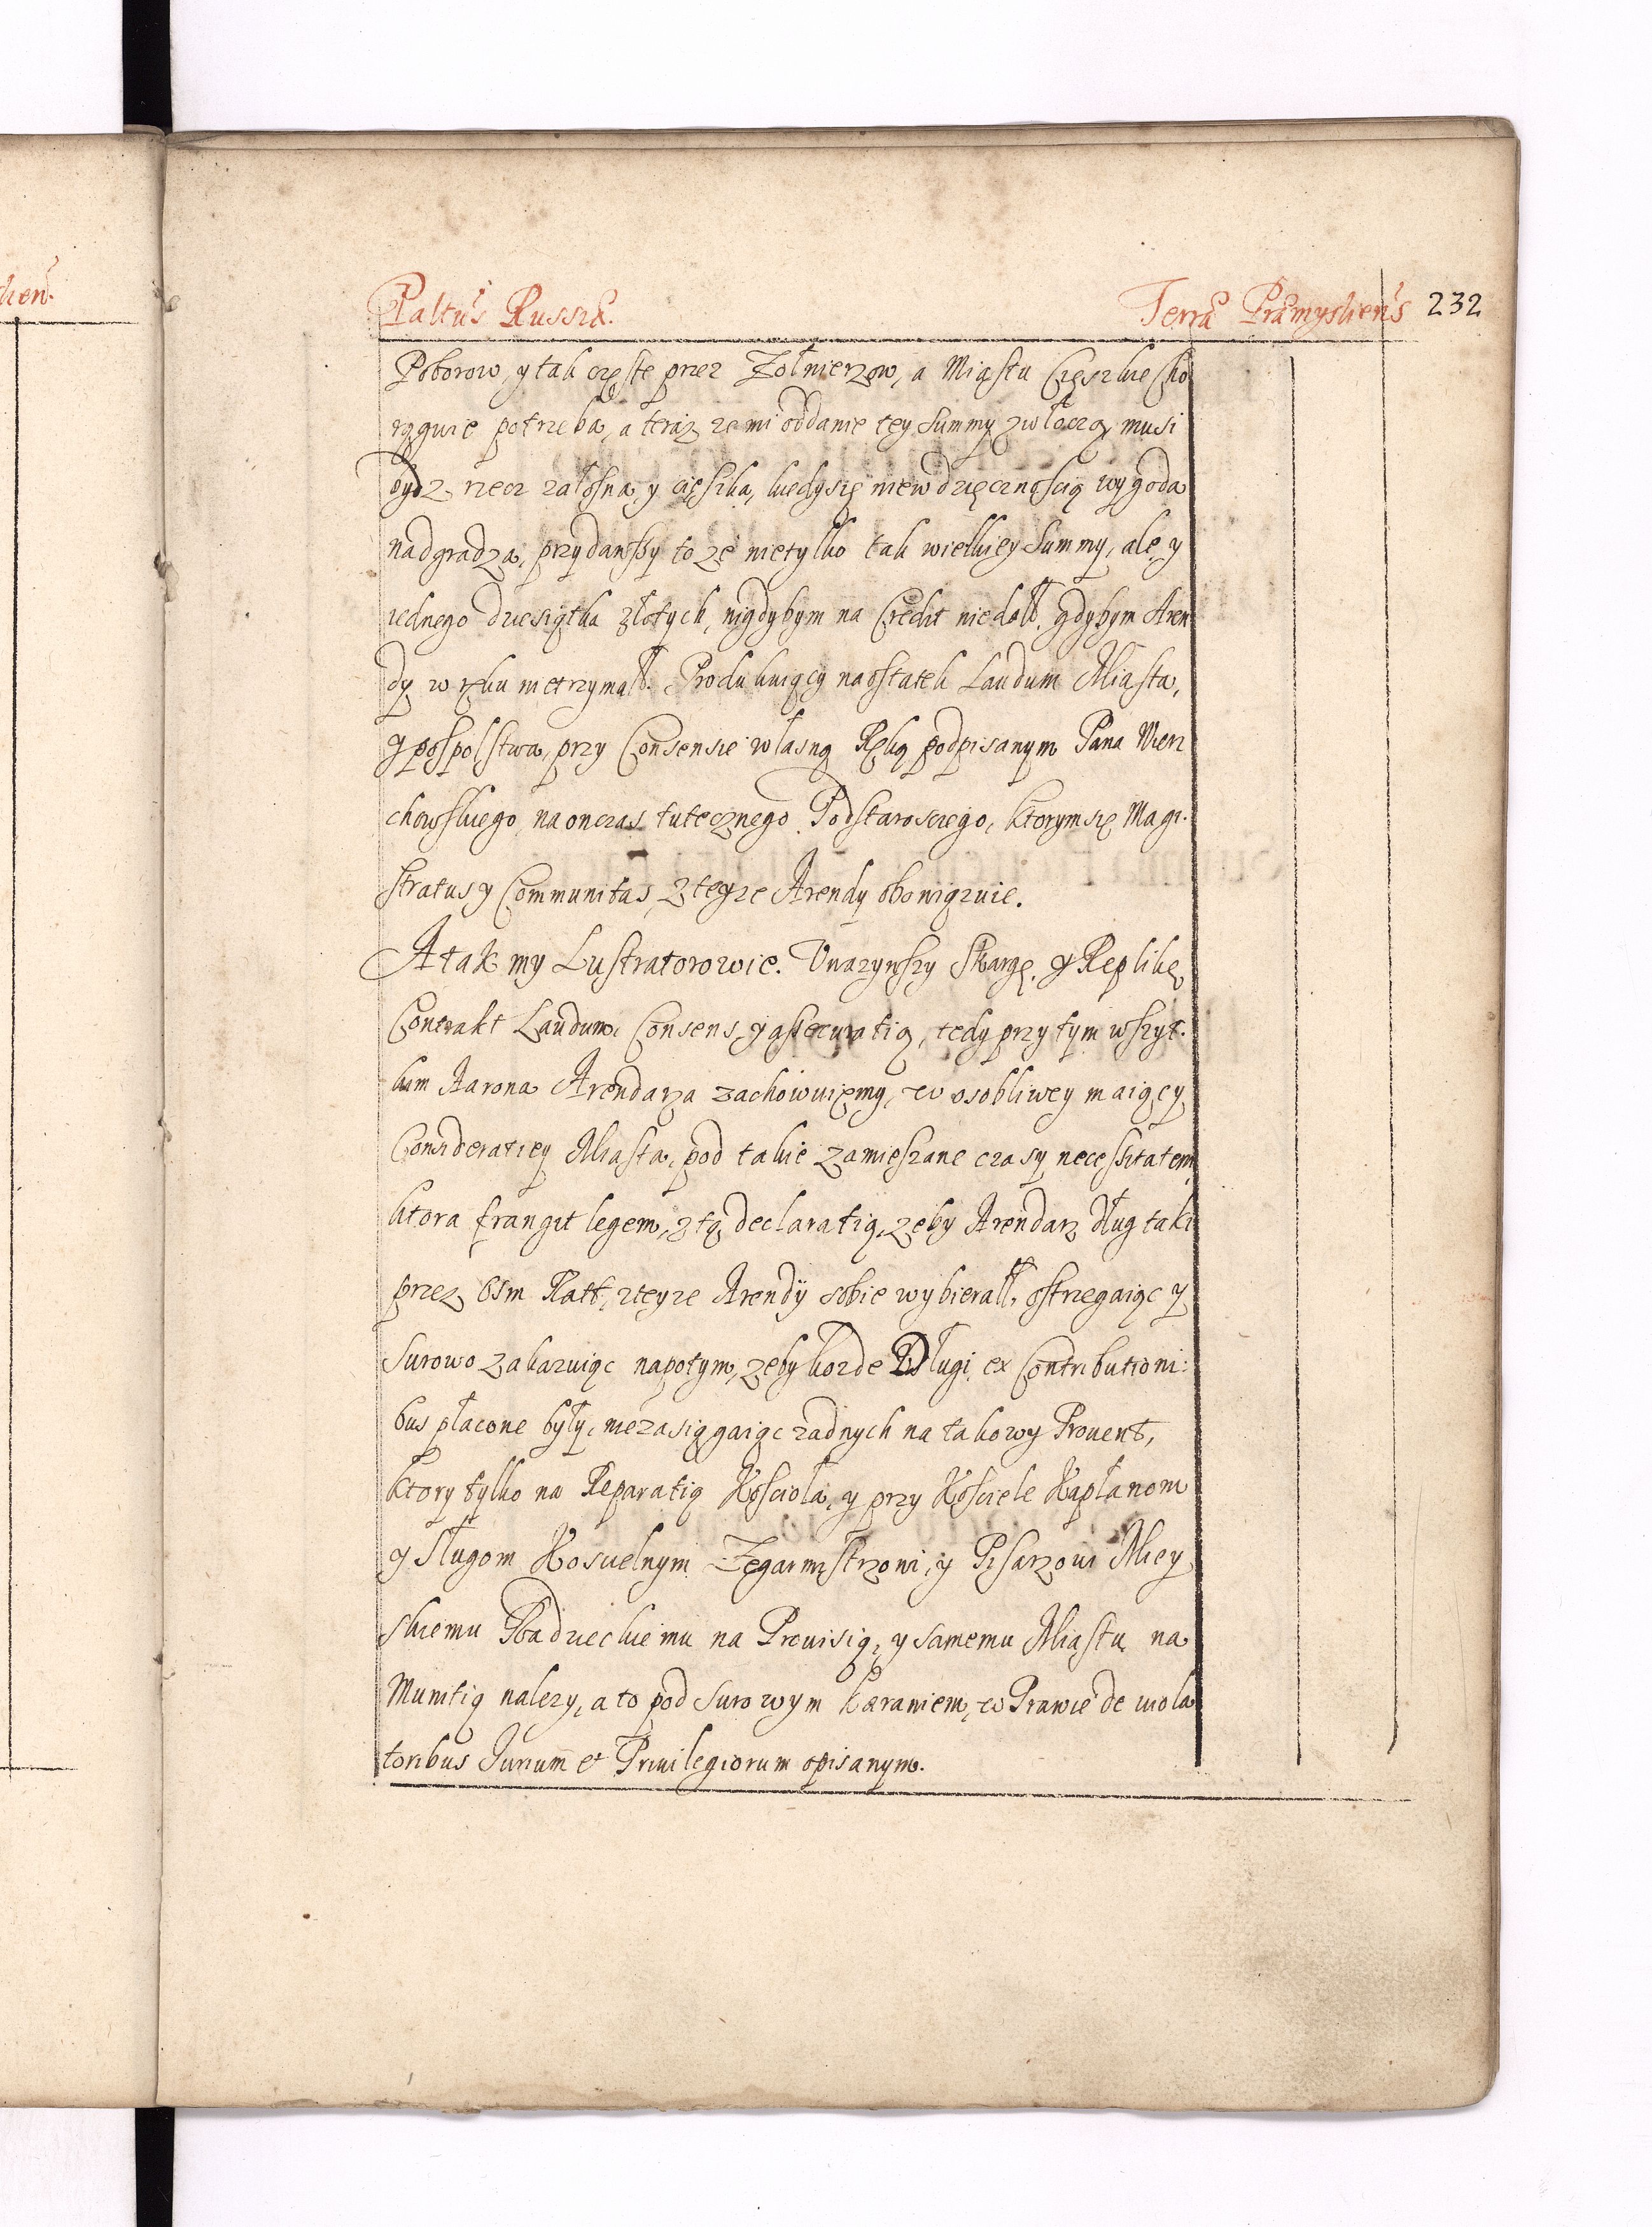 hen.
Paltus Russiæ.
Terræ Præmyslien̄s 232
Poborow, y tak częste przez Zołnierzow, a Miastu Cięszkie Cho
rągwie potrzeba, a teraz zemi oddanie tey Summy zwłoczą musi
bydz rzecz załosna, y cięszka, kiedy się niewdzięcznoscią wygoda
nadgradza, przydawszy to ze nietylko tak wielkiey Summy, ale y
iednego dziesiątka złotych, nigdybym na Credit niedał. gdybym Aren
dy w ręku nietrzymał. Produkuiący naostatek Laudum Miasta,
y pospolstwa, przy Consensie własną Ręką podpisanym Pana Wierz
chowskiego na onczas tutecznego Podstarosciego, ktorym się Magi.
stratus y Communitas z teyze Arendy obowiązuie.
A tak my Lustratorowie. Uwazywszy Skargę, y Replikę
Contrakt Laudum, Consens, y assecuratią, tedy przy tym wszyt.
kim Aarona Arendarza zachowuiemy, w osobliwey maiący
Consideratiey Miasta, pod takie zamieszane czasy necessitatem
ktora frangit legem, z tą declaratią, zeby Arendarz dług taki
przez osm Ratt, z teyze Arendy sobie wybierał, ostrzegaiąc y
surowo zakazuiąc napotym, zeby kozde Długi ex Contributioni:
bus płacone były, niezasiągaiąc zadnych na takowy Prouent,
ktory tylko na Reparatią Kosciola, y przy Kosciele Kapłanom
y Sługom Koscielnym Zegarmistrzowi, y Pisarzowi Miey
skiemu Radzieckiemu na Prouisią, y samemu Miastu na
Munitią nalezy, a to pod surowym karaniem, w Prawie de viola
toribus Iurium et Priuilegiorum opisanym.